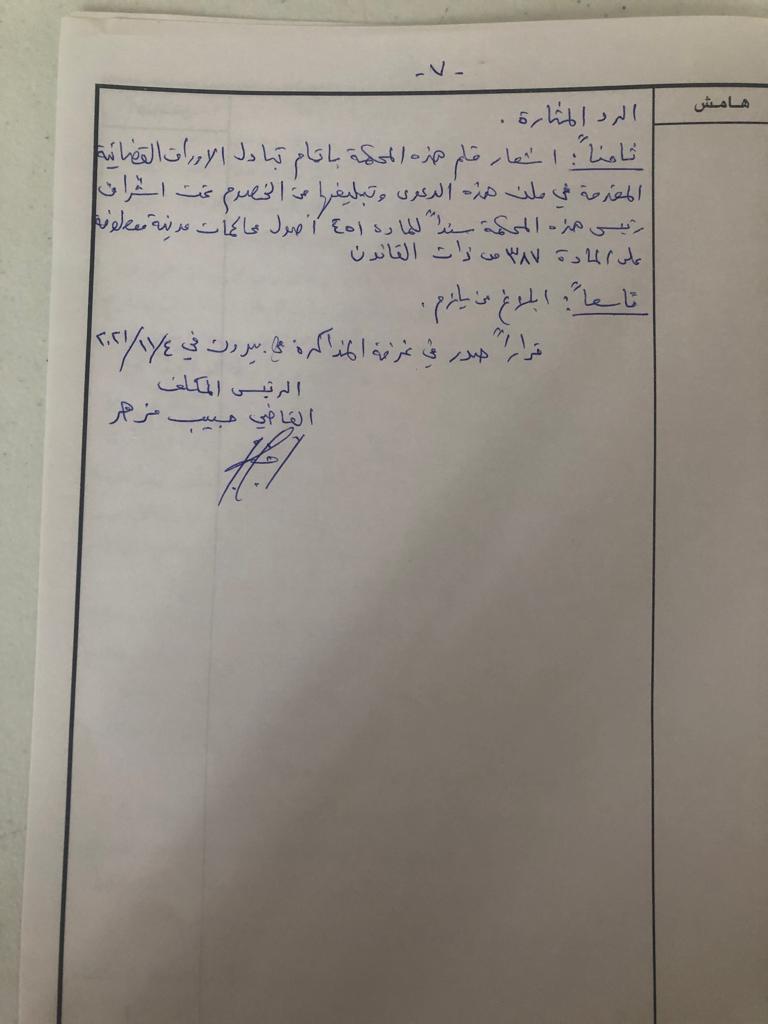 - ٧ -
هامش
الرد المثارة .
ثامناً : اشعار قلم هذه المحكمة باتمام تبادل الاوراق القضائية
المقدمة في ملف هذه الدعوى وتبليغها من الخصوم تحت اشراف
رئيس هذه المحكمة سنداً للمادة ٤٥١ أصول محاكمات مدنية معطوفة
على المادة ٣٨٧ من ذات القانون
تاسعاً : ابلاغ من يلزم .
قراراً صدر في غرفة المذاكرة في بيروت في ٢٠٢١/١١/٤
الرئيس المكلف
القاضي حبيب مزهر